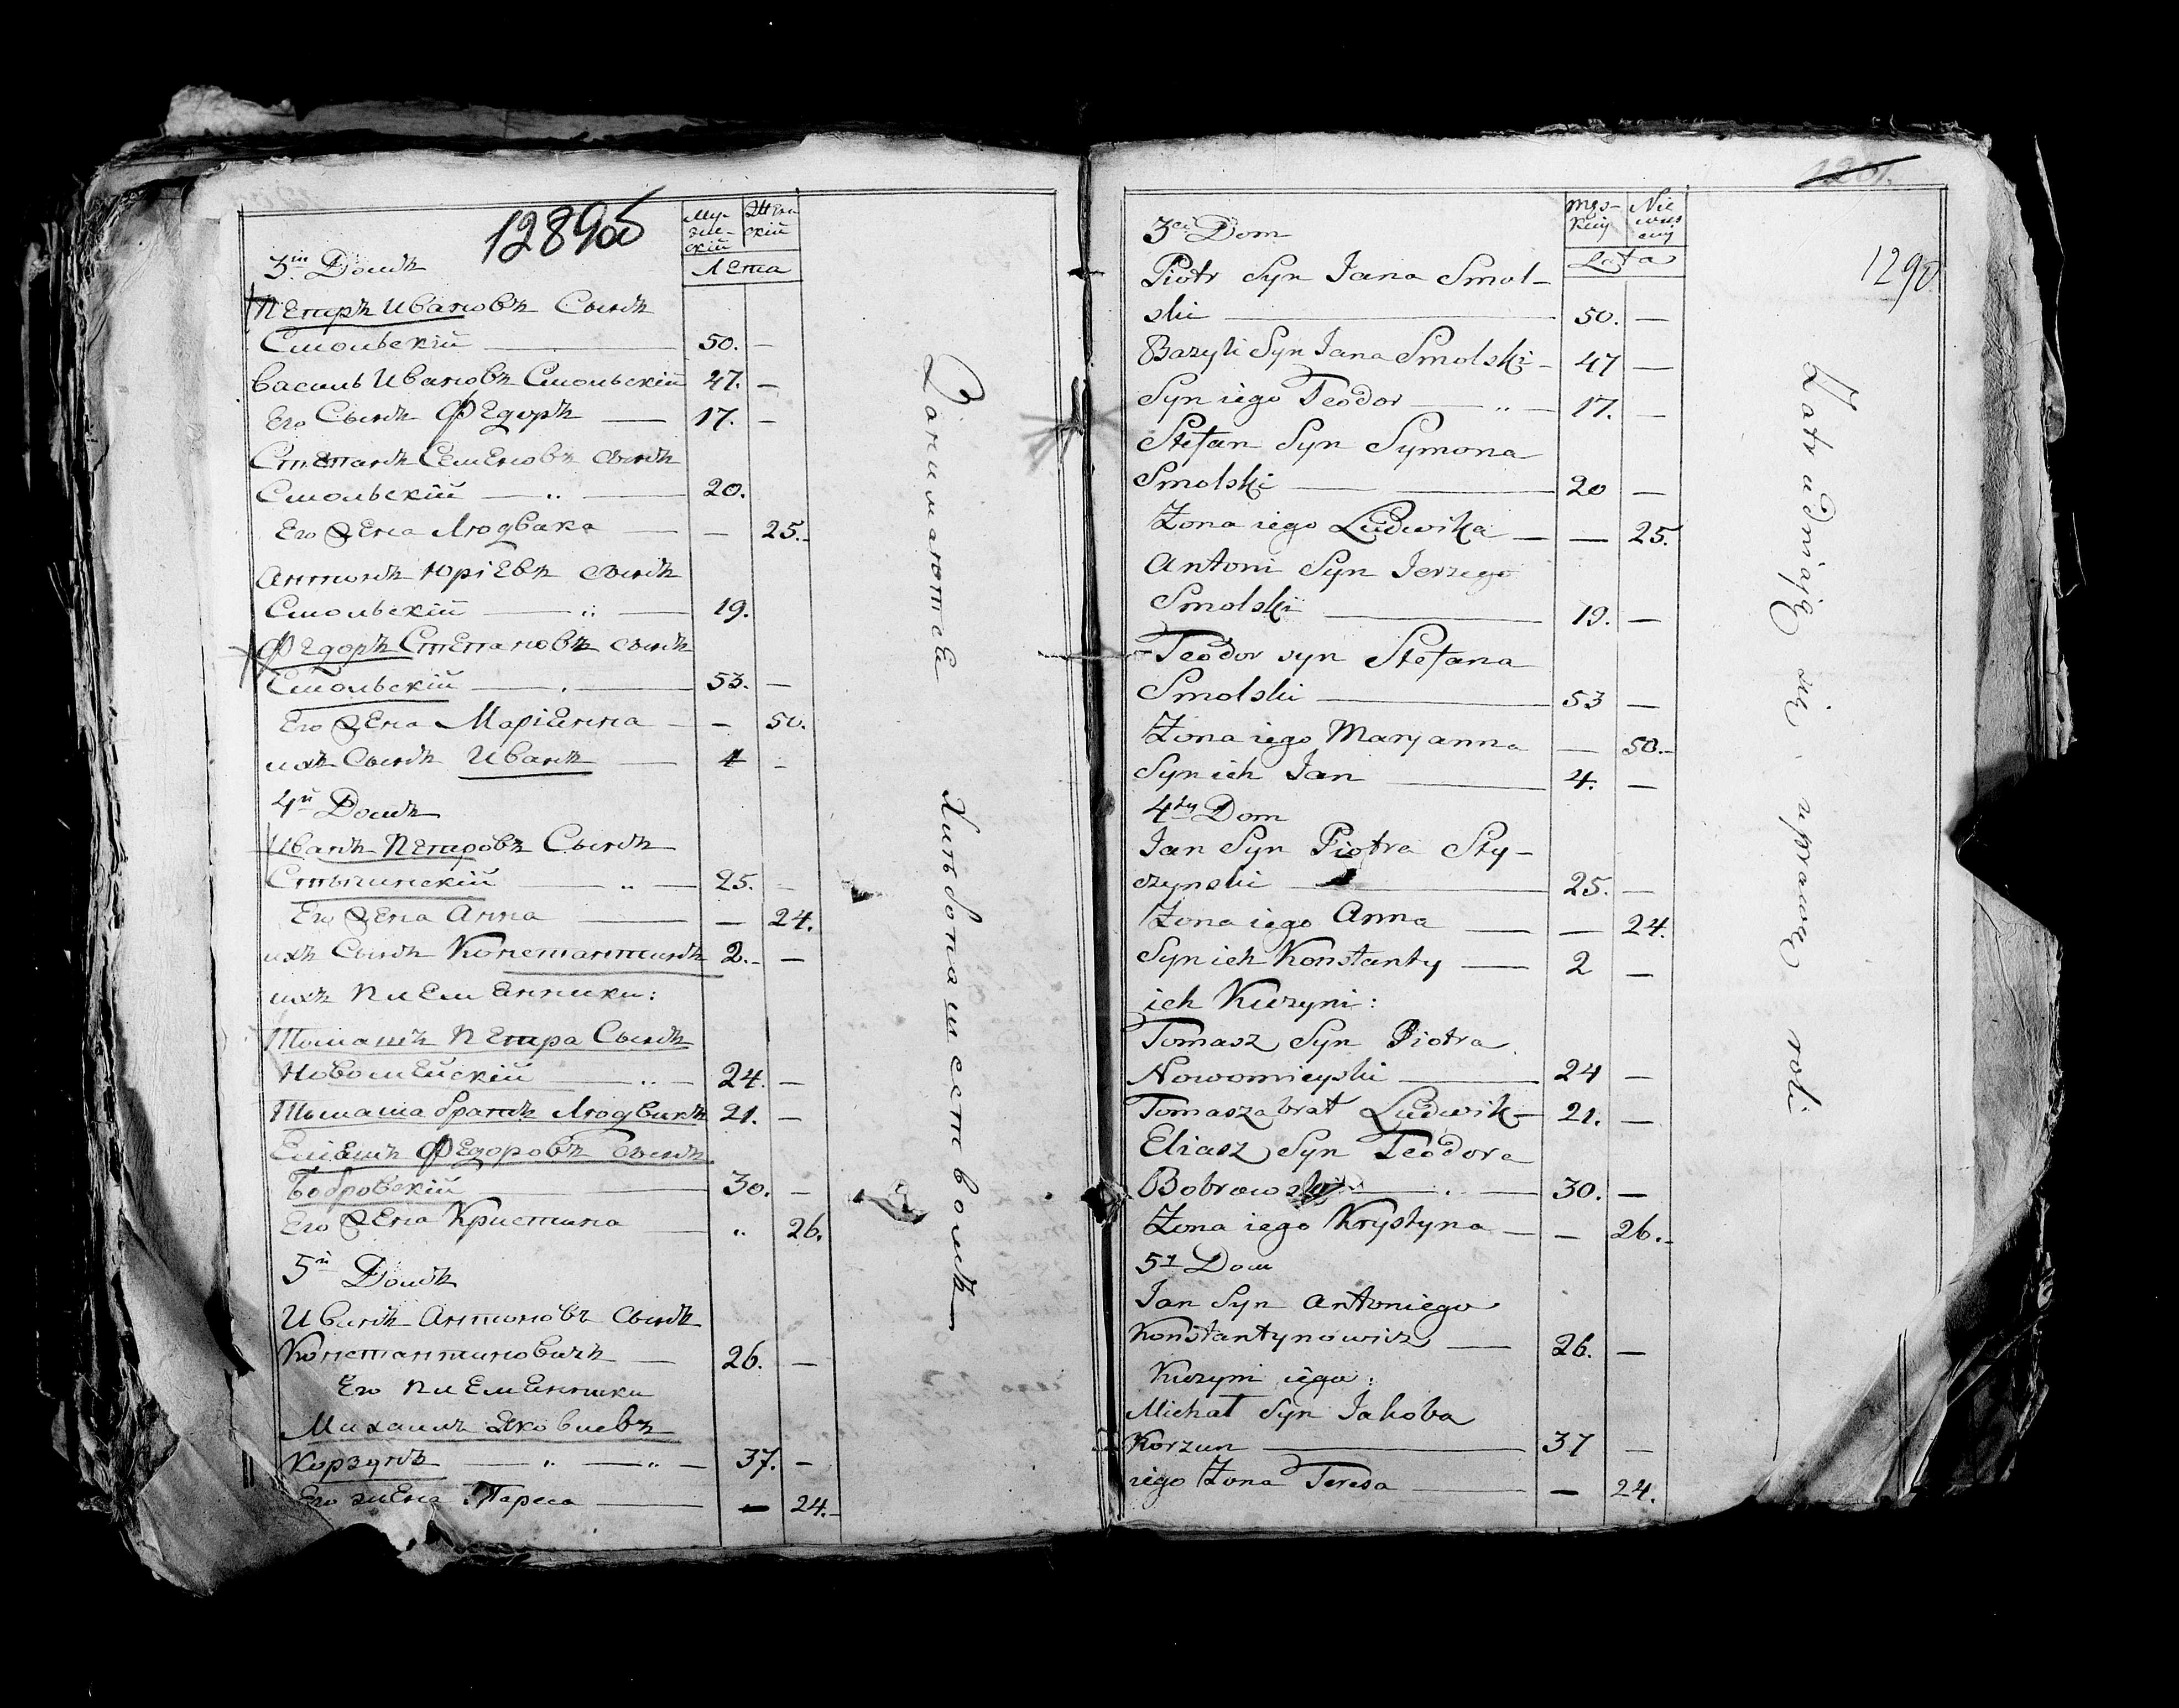 1289об
Му-
жес-
кій
Жен
скій
Лета
3й Домъ
Петръ Ивановъ Сынъ
Смольскій 50. —
Василь Ивановъ Смольскій 47. —
Его Сынъ Федоръ 17. —
Степанъ Семеновъ сынъ
Смольскій 20.
Его Жена Людвика — 25.
Антонъ Юріевъ сынъ
Смольскій 19.
Федоръ Степановъ сынъ
Смольскій 53. —
Его Жена Маріанна — 50.
ихъ Сынъ Иванъ 4 -
4й Домъ
Иванъ Петровъ Сынъ
Стычинскій 25. —
Его Жена Анна — 24.
ихъ Сынъ Константинъ 2. —
ихъ племенники:
Томашъ Петра Сынъ
Новомейскій 24. —
Томаша братъ Людвикъ 21. —
Еліяшъ Федоровъ сынъ
Бобровскій 30. —
Его Жена Кристина „ 26.
5й Домъ
Иванъ Антоновъ сынъ
Константиновичъ 26. —
Его племенники
Михаилъ Яковлевъ
Корзунъ 37. —
Его жена Тереса — 24.
Занимаются Хлебопашествомъ
1290
męs-
kiej
Nie
wieś
ciej
Lata
3ci Dom
Piotr Syn Jana Smol-
ski 50. —
Bazyli Syn Jana Smolski 47 —
Syn iego Teodor 17. —
Stefan Syn Symona
Smolski 20 —
Żona iego Ludwika — 25.
Antoni Syn Jerzego
Smolski 19. —
Teodor syn Stefana
Smolski 53 —
Żona iego Maryanna — 50.
Syn ich Jan 4. —
4ty Dom
Jan Syn Piotra Sty-
czynski 25. —
Żona iego Anna — 24.
Syn ich Konstanty 2 —
ich Kuzyni:
Tomasz Syn Piotra
Nowomieyski 24 —
Tomasza brat Ludwik 21. —
Eliasz Syn Teodora
Bobrowski 30. —
Żona iego Krystyna — 26.
5ty Dom
Jan Syn Antoniego
Konstantynowicz 26. —
Kuzyni iego:
Michał Syn Jakoba
Korzun 37 —
iego Żona Teresa — 24.
Zatrudniaią się uprawą roli